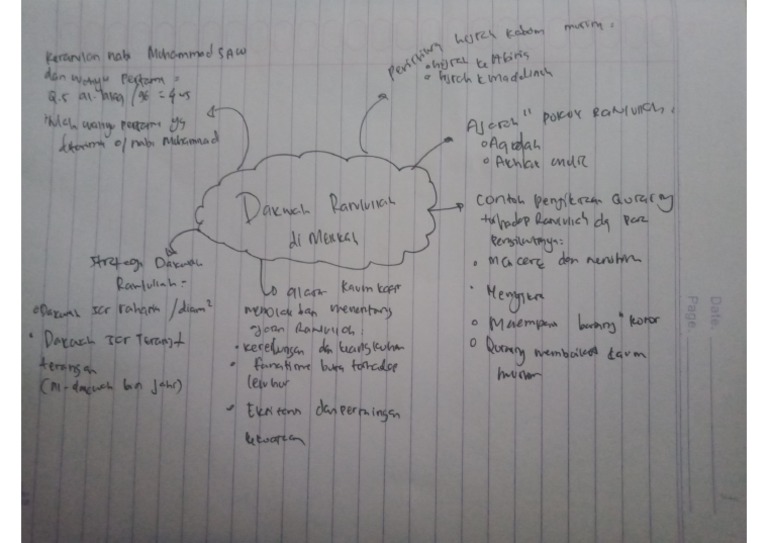 Kerasulan nabi Muhammad SAW
dan wahyu Pertama =
Q.S al-Alaq / 96 = 1-5
wahyu pertama yg
diterima o/ nabi Muhammad
Peristiwa hijrah kaum muslim :
hijrah ke Habsyi
hijrah k madinah
Ajaran" Pokok Rasulullah :
Aqidah
Akhlak mulia
Contoh pengikaran Quraisy
terhadap Rasulullah dg para
Pengikutnya:
Mencaci dan menghina
Melempari barang" kotor
Quraisy memboikot kaum
muslim
Dakwah Rasulullah
di Mekkah
Strategi Dakwah
Rasulullah =
Dakwah scr rahasia / diam²
Dakwah scr Terang²
terangan
(Al-dakwah bil Jahr)
alasan kaum kafir
menolak dan menentang
ajaran Rasulullah:
kesedungan dan keangkuhan
Fanatisme buta terhadap
leluhur
Eksistensi dan persaingan
kekuasaan
Date.
Page.